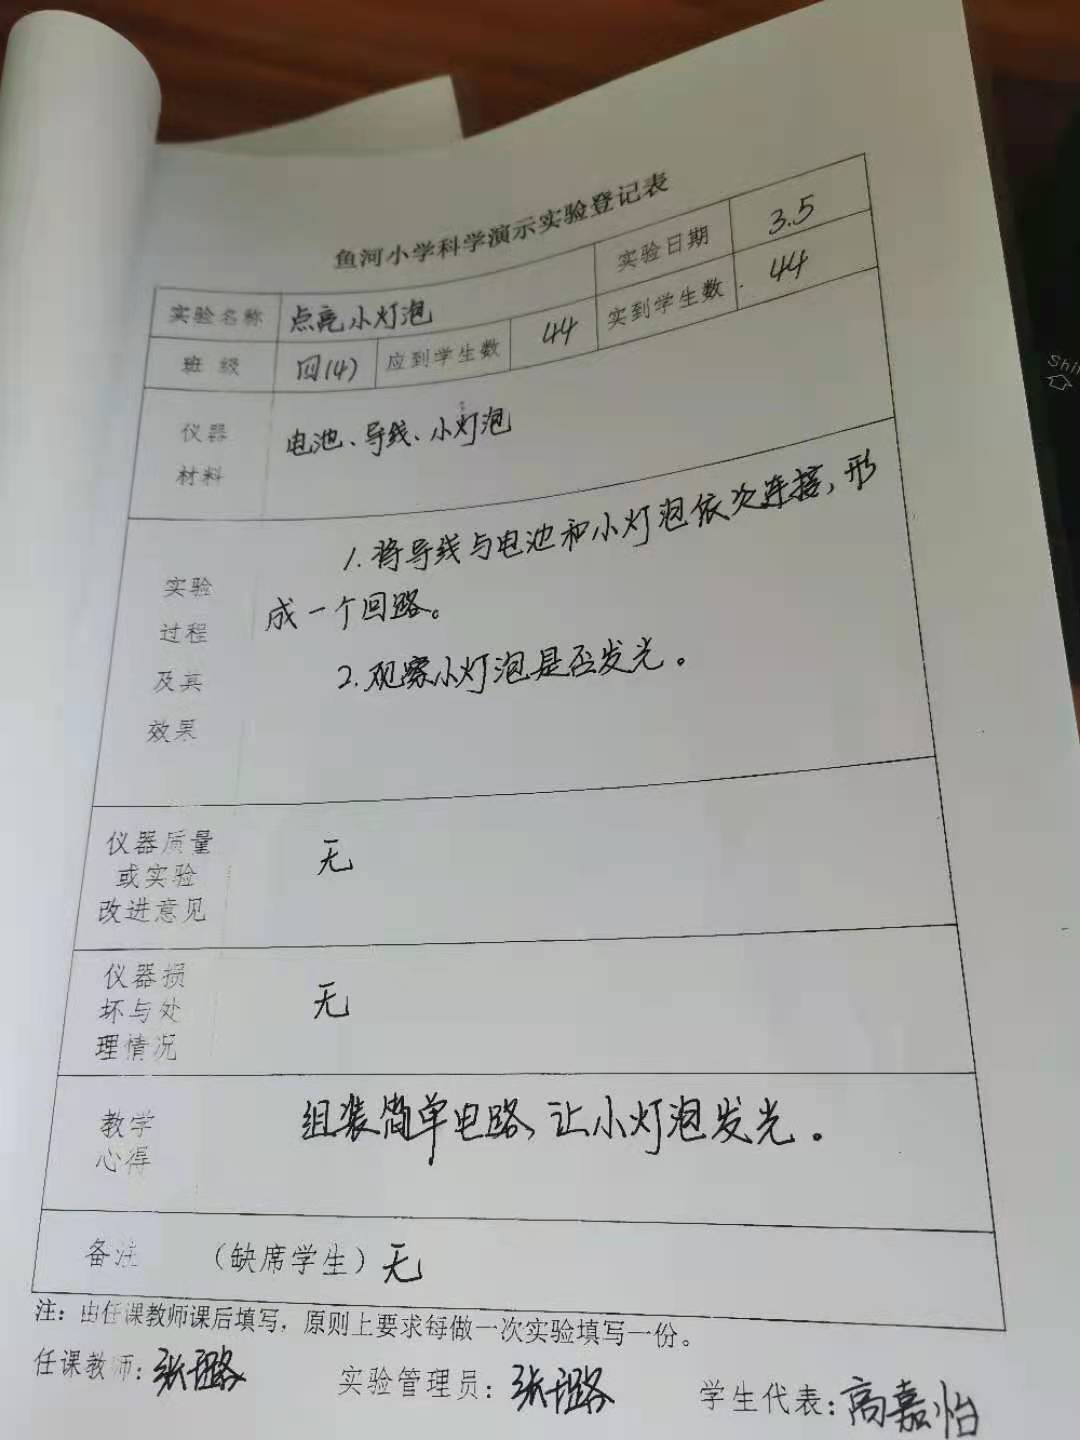 鱼河小学科学演示实验登记表
实验名称 点亮小灯泡 实验日期 3.5
班 级 四(4) 应到学生数 44 实到学生数 44
仪器
材料
电池、导线、小灯泡
实验
过程
及其
效果
1.将导线与电池和小灯泡依次连接,形
成一个回路。
2.观察小灯泡是否发光。
仪器质量
或实验
改进意见
无
仪器损
坏与处
理情况
无
教学
心得
组装简单电路,让小灯泡发光。
备注 (缺席学生)无
注:由任课教师课后填写,原则上要求每做一次实验填写一份。
任课教师:张 实验管理员:张 学生代表:高嘉怡
Shif